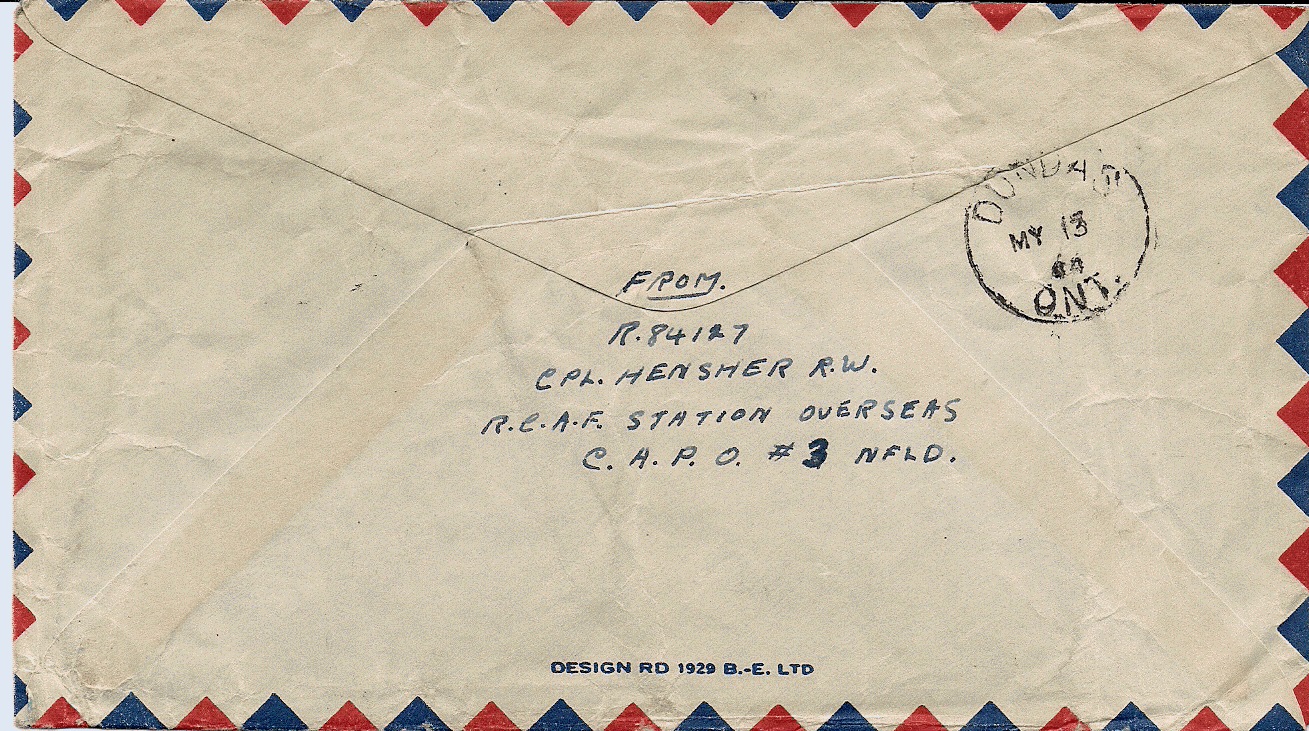 DUNDAS
MY 13
44
ONT.
FROM.
R.84127
CPL. HENSHER R.W.
R.C.A.F. STATION OVERSEAS
C. A. P. O. #3 NFLD.
DESIGN RD 1929 B.-E. LTD